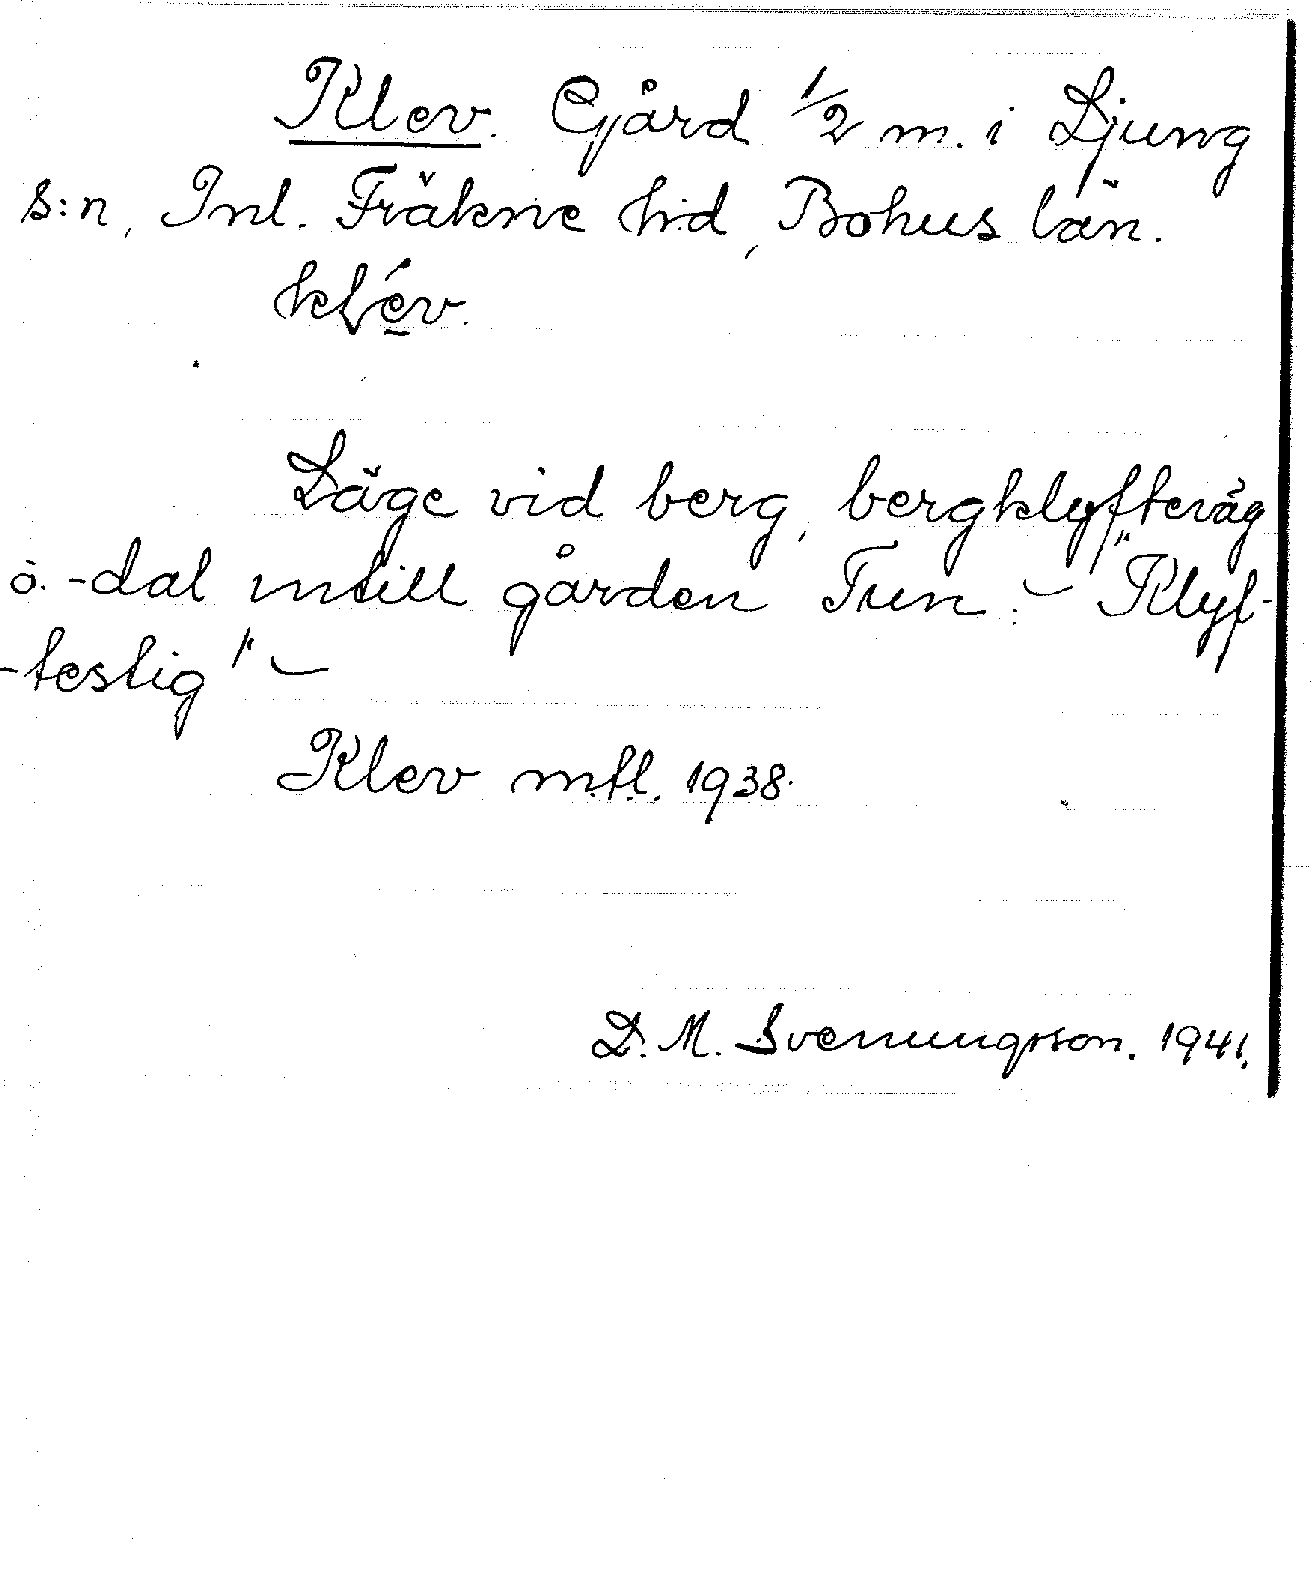 Klev. Gård 1/2 m. i Ljung
s:n, Inl. Fräkne hd, Bohus län.
klév.
Läge vid berg, bergklyfteväg
o. -dal intill gården Tun. - "Klyf-
-testig" -
Klev m.fl. 1938.
D. M. Svenungsson. 1941.